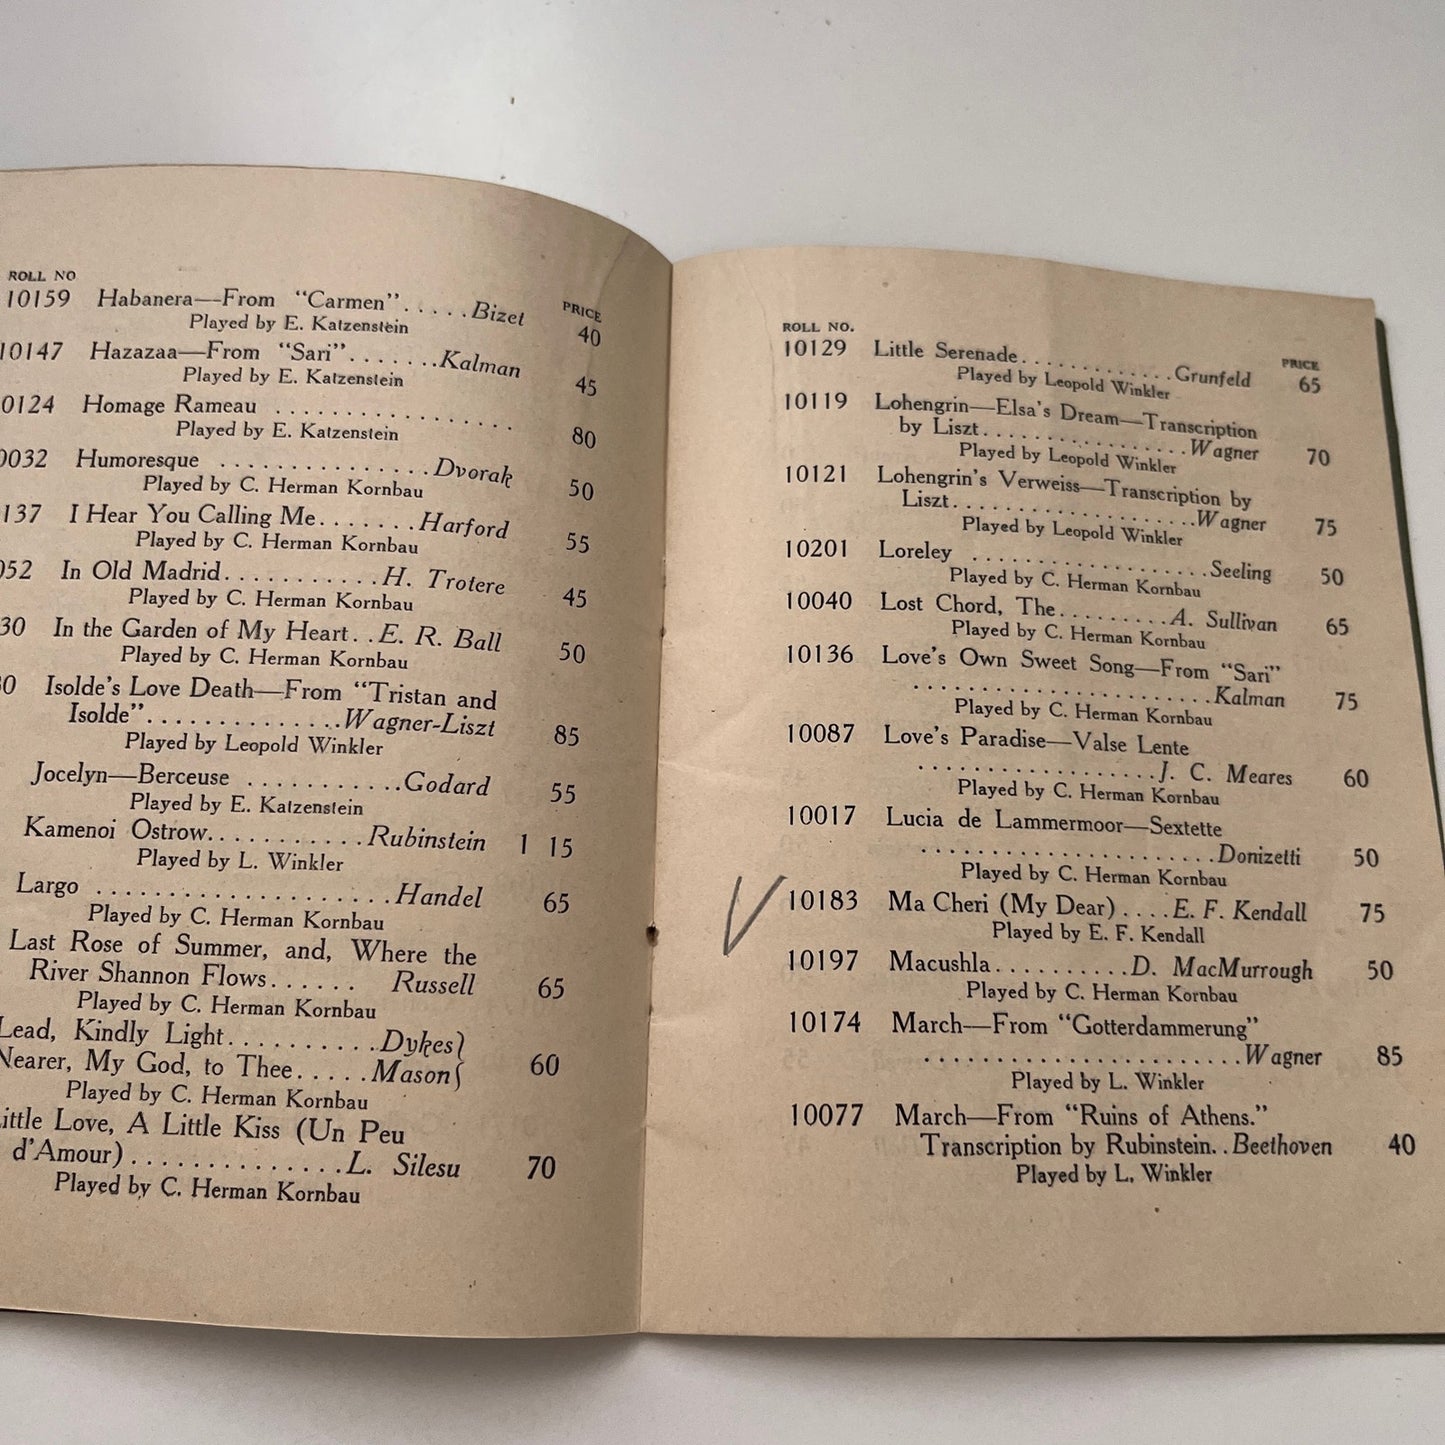 ROLL NO
PRICE
10159 Habanera—From "Carmen".....Bizet 40
Played by E. Katzenstein
10147 Hazazaa—From "Sari".......Kalman 45
Played by E. Katzenstein
0124 Homage Rameau ................ 80
Played by E. Katzenstein
0032 Humoresque ...............Dvorak 50
Played by C. Herman Kornbau
137 I Hear You Calling Me.......Harford 55
Played by C. Herman Kornbau
052 In Old Madrid...........H. Trotere 45
Played by C. Herman Kornbau
30 In the Garden of My Heart..E. R. Ball 50
Played by C. Herman Kornbau
0 Isolde's Love Death—From "Tristan and
Isolde"..............Wagner-Liszt 85
Played by Leopold Winkler
Jocelyn—Berceuse ...........Godard 55
Played by E. Katzenstein
Kamenoi Ostrow...........Rubinstein 1 15
Played by L. Winkler
Largo .....................Handel 65
Played by C. Herman Kornbau
Last Rose of Summer, and, Where the
River Shannon Flows...... Russell 65
Played by C. Herman Kornbau
Lead, Kindly Light..........Dykes}
Nearer, My God, to Thee.....Mason} 60
Played by C. Herman Kornbau
ittle Love, A Little Kiss (Un Peu
d'Amour)..............L. Silesu 70
Played by C. Herman Kornbau
ROLL NO.
PRICE
10129 Little Serenade...........Grunfeld 65
Played by Leopold Winkler
10119 Lohengrin—Elsa's Dream—Transcription
by Liszt...............Wagner 70
Played by Leopold Winkler
10121 Lohengrin's Verweiss—Transcription by
Liszt..................Wagner 75
Played by Leopold Winkler
10201 Loreley .................Seeling 50
Played by C. Herman Kornbau
10040 Lost Chord, The.........A. Sullivan 65
Played by C. Herman Kornbau
10136 Love's Own Sweet Song—From "Sari"
......................Kalman 75
Played by C. Herman Kornbau
10087 Love's Paradise—Valse Lente
..................J. C. Meares 60
Played by C. Herman Kornbau
10017 Lucia de Lammermoor—Sextette
......................Donizetti 50
Played by C. Herman Kornbau
10183 Ma Cheri (My Dear)....E. F. Kendall 75
Played by E. F. Kendall
10197 Macushla..........D. MacMurrough 50
Played by C. Herman Kornbau
10174 March—From "Gotterdammerung"
........................Wagner 85
Played by L. Winkler
10077 March—From "Ruins of Athens."
Transcription by Rubinstein..Beethoven 40
Played by L. Winkler